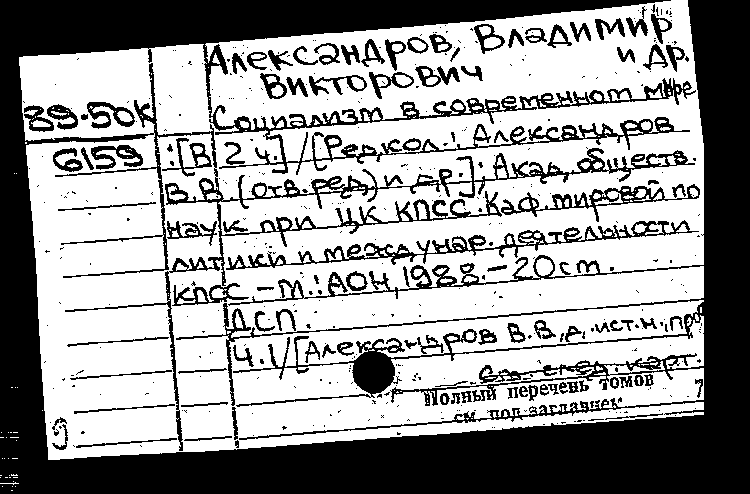 Александров, Владимир
Викторович и др.
89-50к
Социализм в современном мире
6159
:[В 2 ч.]/[Редкол.: Александров
В.В. (отв. ред) и др.]; Акад. обществ.
наук при ЦК КПСС. Каф. мировой по
литики и междунар. деятельности
КПСС. – М.: АОН, 1988. – 20 cm.
ДСП.
Ч.1/[Александров В.В., д. ист. н., проф
См. след. карт.
Полный перечень томов
см. под заглавием
7